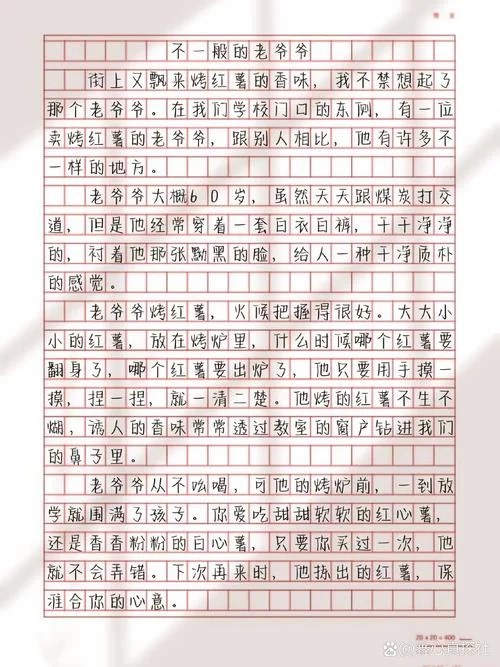 不一般的老爷爷
街上又飘来烤红薯的香味，我不禁想起了
那个老爷爷。在我们学校门口的东侧，有一位
卖烤红薯的老爷爷，跟别人相比，他有许多不
一样的地方。
老爷爷大概60岁，虽然天天跟煤炭打交
道，但是他经常穿着一套白衣白裤，干干净净
的，衬着他那张黝黑的脸，给人一种干净质朴
的感觉。
老爷爷烤红薯，火候把握得很好。大大小
小的红薯，放在烤炉里，什么时候哪个红薯要
翻身了，哪个红薯要出炉了，他只要用手摸一
摸，捏一捏，就一清二楚。他烤的红薯不生不
焖，诱人的香味常常透过教室的窗户钻进我们
的鼻子里。
老爷爷从不吆喝，可他的烤炉前，一到放
学就围满了孩子。你爱吃甜甜软软的红心薯，
还是香香粉粉的白心薯，只要你买过一次，他
就不会弄错。下次再来时，他拣出的红薯，保
准合你的心意。
20×20=400